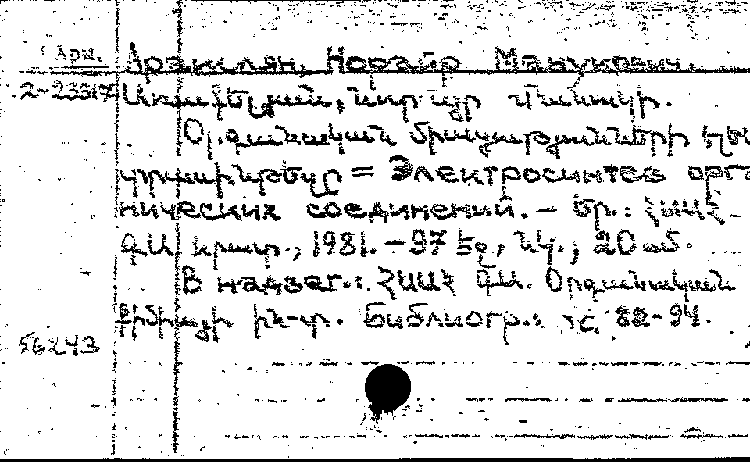 Арм. Аракелян, Норайр Манукович.
2-23317 Առաքելյան, Նորայր Մանուկի.
Օրգանական միացությունների էլեկ
տրասինթեզը = Электросинтез орга
нических соединений. — Եր.: ՀՍՍՀ
ԳԱ հրատ., 1981. — 97 էջ, նկ.; 20 սմ.
В надзаг.: ՀՍՍՀ ԳԱ. Օրգանական
քիմիայի ին-տ. Библиогр.: с. 82-94.
56243